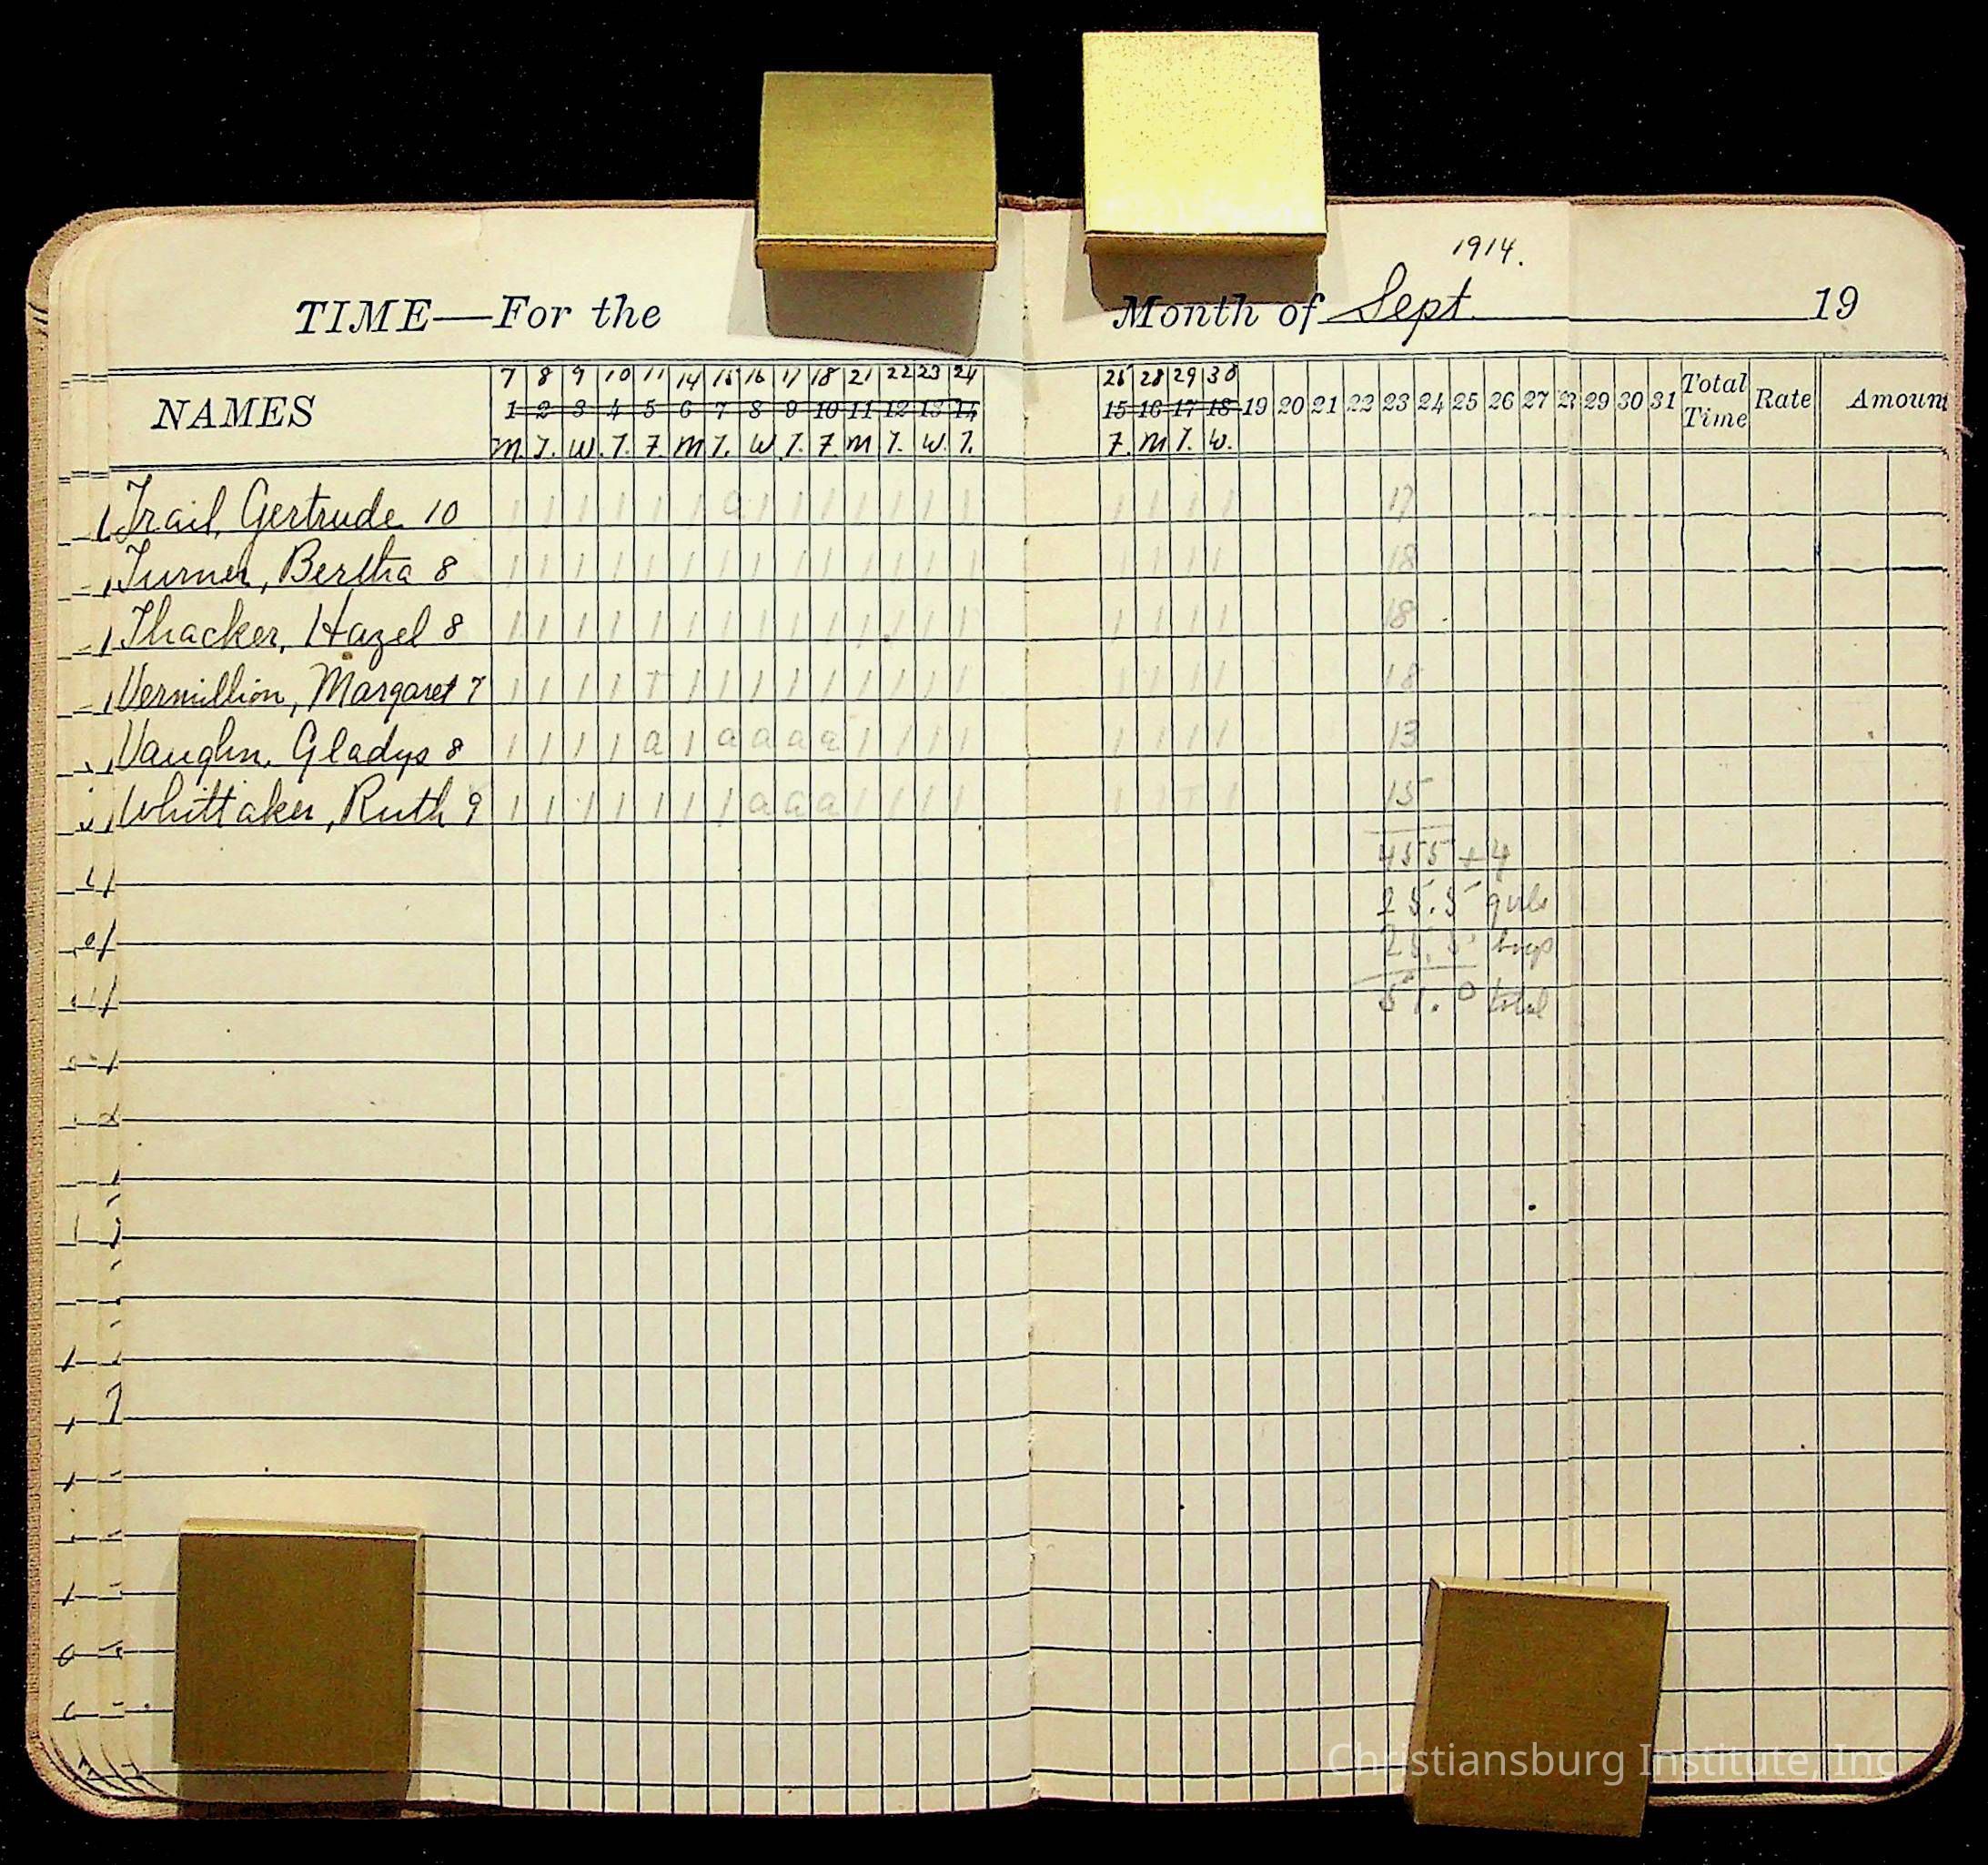 1914.
TIME—For the Month of Sept. 19
7 8 9 10 11 14 15 16 17 18 21 22 23 24 25 28 29 30
NAMES 1 2 3 4 5 6 7 8 9 10 11 12 13 14 15 16 17 18 19 20 21 22 23 24 25 26 27 28 29 30 31 Total Time Rate Amount
M. T. W. T. F. M T. W T. F. M T. W. T. F. M T. W.
Trail, Gertrude 10 1 1 1 1 1 1 a 1 1 1 1 1 1 1 1 1 1 1 17
Turner, Bertha 8 1 1 1 1 1 1 1 1 1 1 1 1 1 1 1 1 1 1 18
Thacker, Hazel 8 1 1 1 1 1 1 1 1 1 1 1 1 1 1 1 1 1 1 18
Vermillion, Margaret 7 1 1 1 1 T 1 1 1 1 1 1 1 1 1 1 1 1 1 18
Vaughn, Gladys 8 1 1 1 1 a 1 a a a a 1 1 1 1 1 1 1 1 13
Whittaker, Ruth 9 1 1 1 1 1 1 1 a a a 1 1 1 1 1 1 T 1 15
455 + 4
25.5 girls
25.5 boys
51.0 total
Christiansburg Institute, Inc